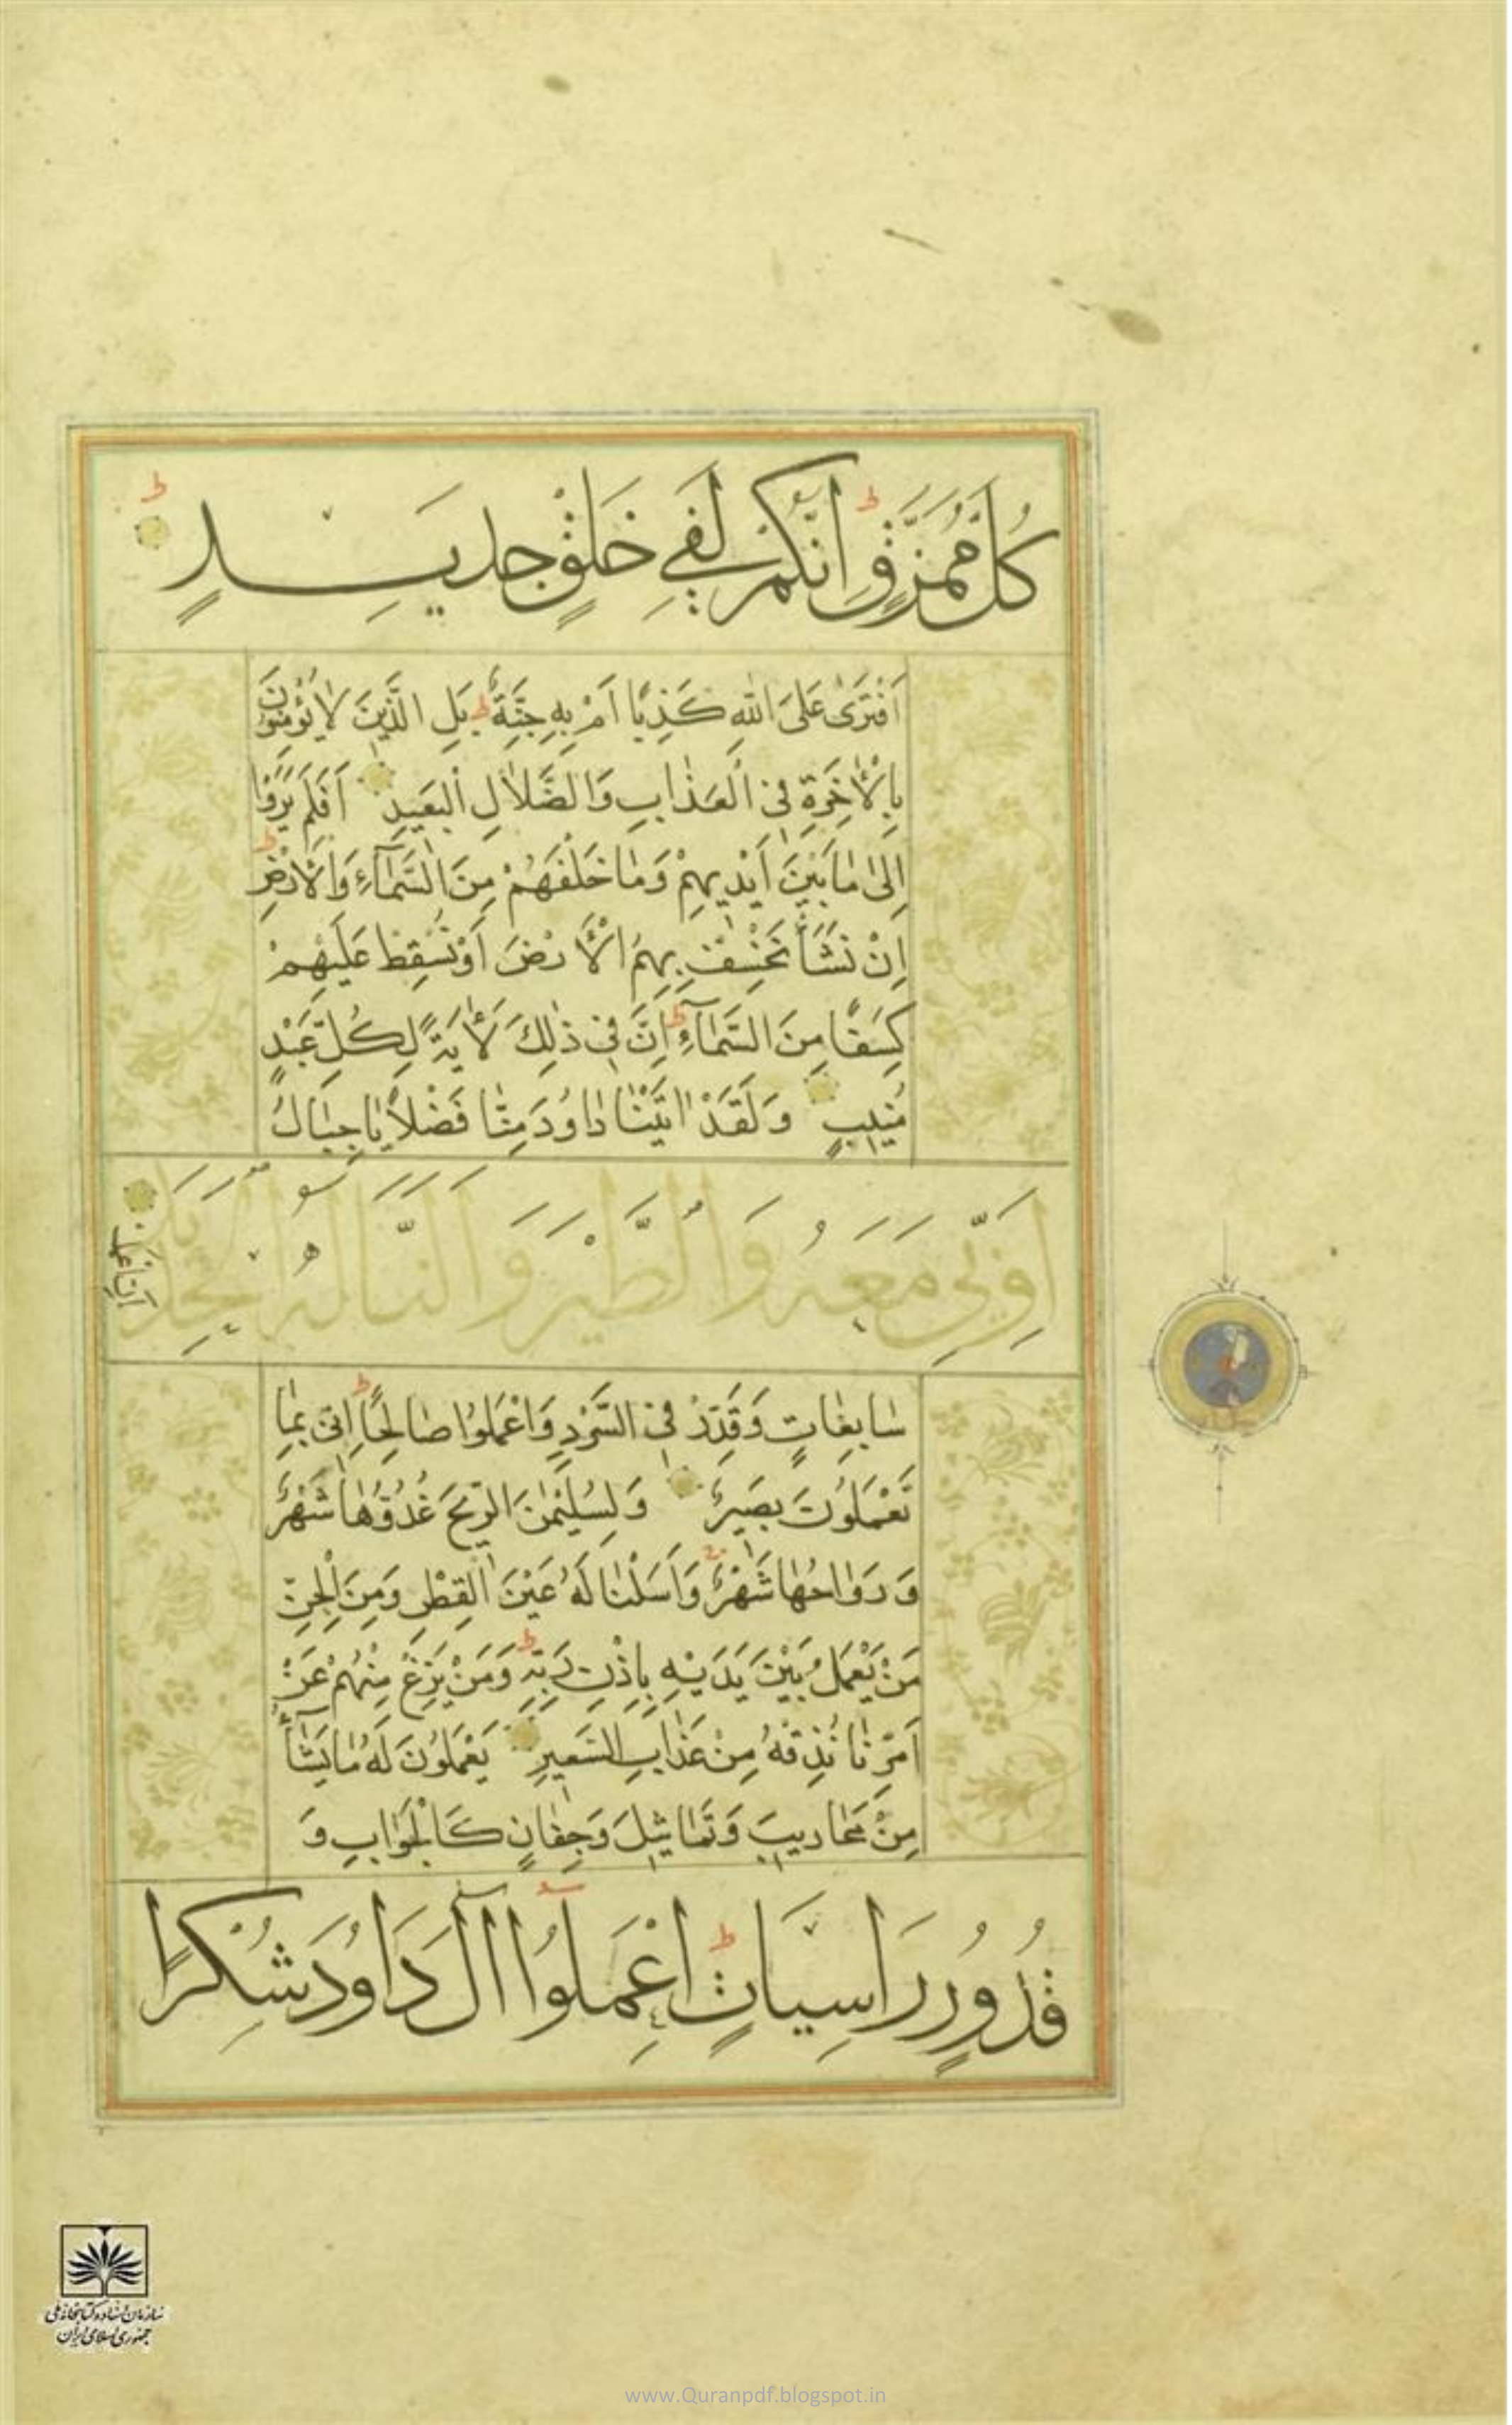 كُلَّ مُمَزَّقٍ اِنَّكُمْ لَفِي خَلْقٍ جَدِيدٍ
اَفْتَرَىٰ عَلَى اللّٰهِ كَذِبًا اَمْ بِهِ جِنَّةٌ بَلِ الَّذِينَ لَا يُؤْمِنُونَ
بِالْاٰخِرَةِ فِي الْعَذَابِ وَالضَّلَالِ الْبَعِيدِ اَفَلَمْ يَرَوْا
اِلَىٰ مَا بَيْنَ اَيْدِيهِمْ وَمَا خَلْفَهُمْ مِنَ السَّمَآءِ وَالْاَرْضِ
اِنْ نَشَأْ نَخْسِفْ بِهِمُ الْاَرْضَ اَوْ نُسْقِطْ عَلَيْهِمْ
كِسَفًا مِنَ السَّمَآءِ اِنَّ فِي ذٰلِكَ لَاٰيَةً لِكُلِّ عَبْدٍ
مُنِيبٍ وَلَقَدْ اٰتَيْنَا دَاوُدَ مِنَّا فَضْلًا يَا جِبَالُ
اَوِّبِي مَعَهُ وَالطَّيْرَ وَاَلَنَّا لَهُ الْحَدِيدَ
اَنِ اعْمَلْ
سَابِغَاتٍ وَقَدِّرْ فِي السَّرْدِ وَاعْمَلُوا صَالِحًا اِنِّي بِمَا
تَعْمَلُونَ بَصِيرٌ وَلِسُلَيْمٰنَ الرِّيحَ غُدُوُّهَا شَهْرٌ
وَرَوَاحُهَا شَهْرٌ وَاَسَلْنَا لَهُ عَيْنَ الْقِطْرِ وَمِنَ الْجِنِّ
مَنْ يَعْمَلُ بَيْنَ يَدَيْهِ بِاِذْنِ رَبِّهِ وَمَنْ يَزِغْ مِنْهُمْ عَنْ
اَمْرِنَا نُذِقْهُ مِنْ عَذَابِ السَّعِيرِ يَعْمَلُونَ لَهُ مَا يَشَآءُ
مِنْ مَحَارِيبَ وَتَمَاثِيلَ وَجِفَانٍ كَالْجَوَابِ وَ
قُدُورٍ رَاسِيَاتٍ اِعْمَلُوا اٰلَ دَاوُدَ شُكْرًا
سازمان اسناد و کتابخانه ملی
جمهوری اسلامی ایران
www.Quranpdf.blogspot.in